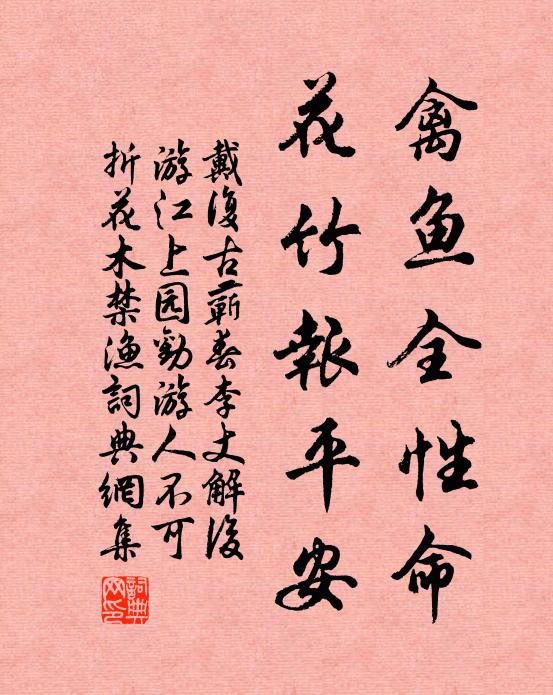 禽鱼全性命
花竹報平安
戴復古蘄春李丈解後
游江上园勸游人不可
折花木禁漁詞典網集
詞典
网印